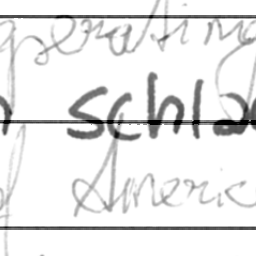 operating
schla
of America